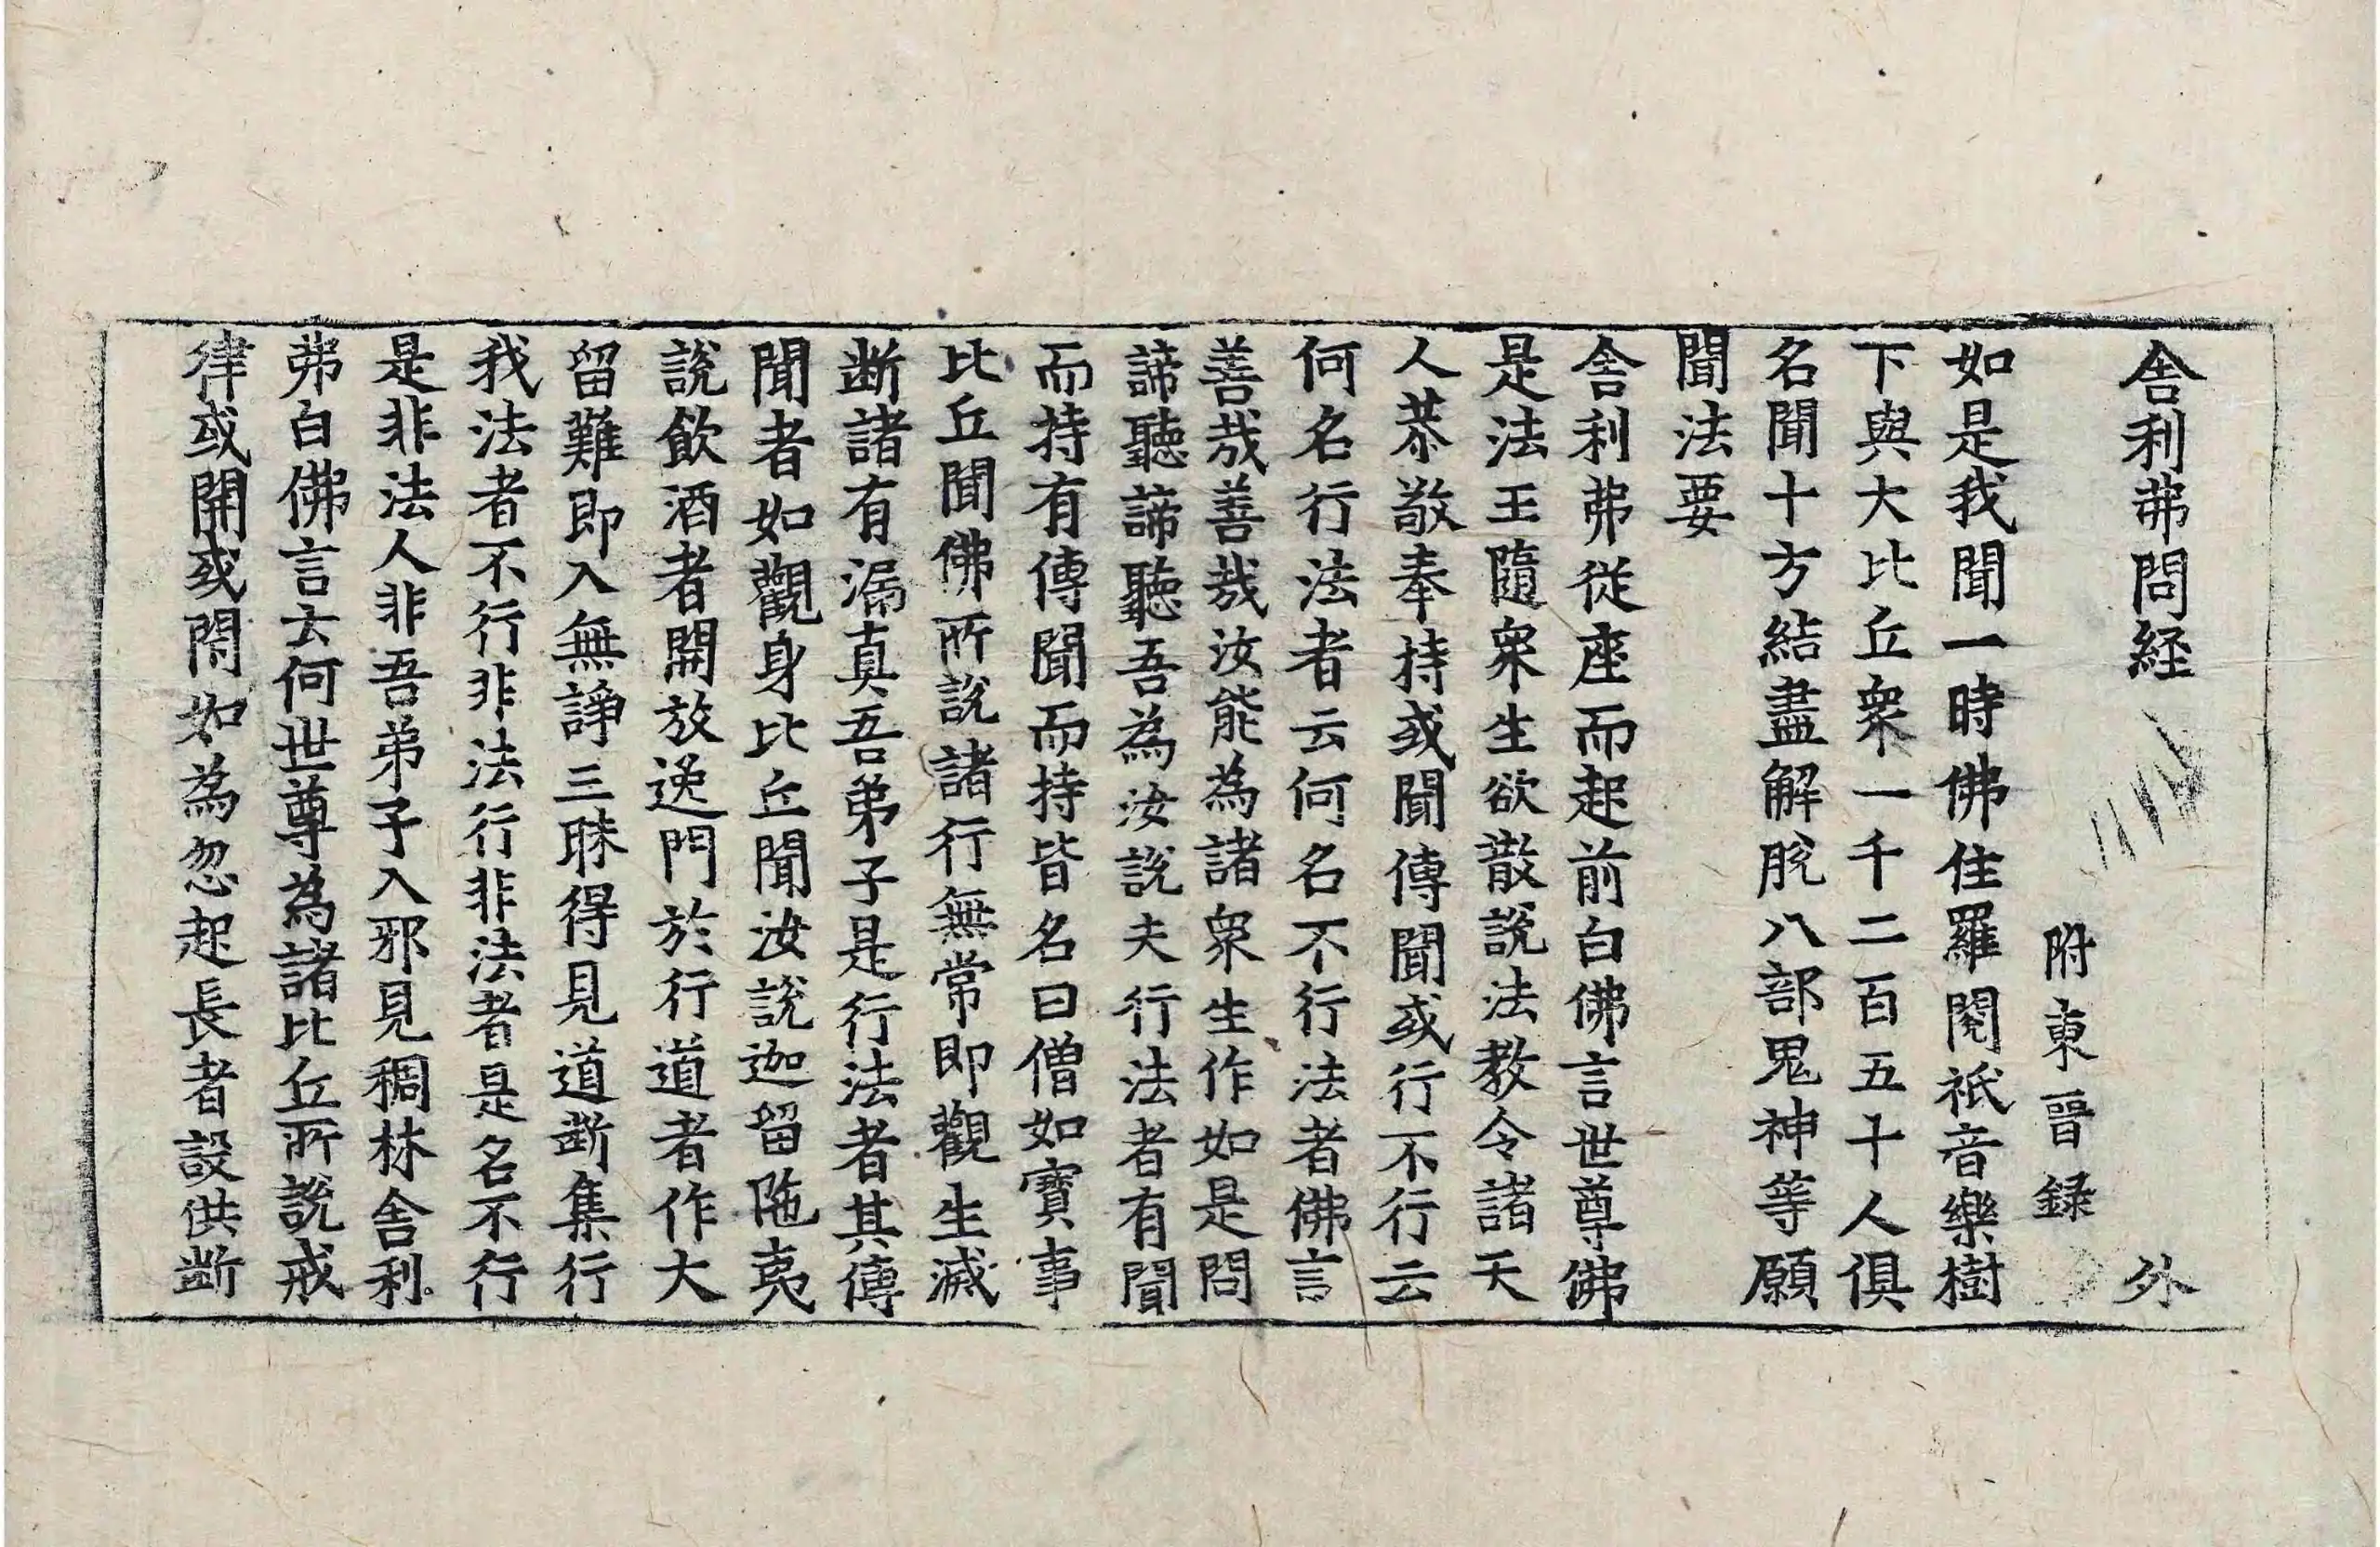 舎利弗問経 外
附東晉録
如是我聞一時佛住羅閱祇音樂樹
下與大比丘衆一千二百五十人俱
名聞十方結盡解脫八部鬼神等願
聞法要
舎利弗從座而起前白佛言世尊佛
是法王隨衆生欲散說法教令諸天
人恭敬奉持或聞傳聞或行不行云
何名行法者云何名不行法者佛言
善哉善哉汝能為諸衆生作如是問
諦聽諦聽吾為汝說夫行法者有聞
而持有傳聞而持皆名曰僧如寶事
比丘聞佛所說諸行無常即觀生滅
断諸有漏真吾弟子是行法者其傳
聞者如觀身比丘聞汝說迦留陁夷
說飲酒者開放逸門於行道者作大
留難即入無諍三昧得見道斷集行
我法者不行非法行非法者是名不行
是非法人非吾弟子入邪見稠林舎利
弗白佛言云何世尊為諸比丘所說戒
律或開或閇如為忽起長者設供斷